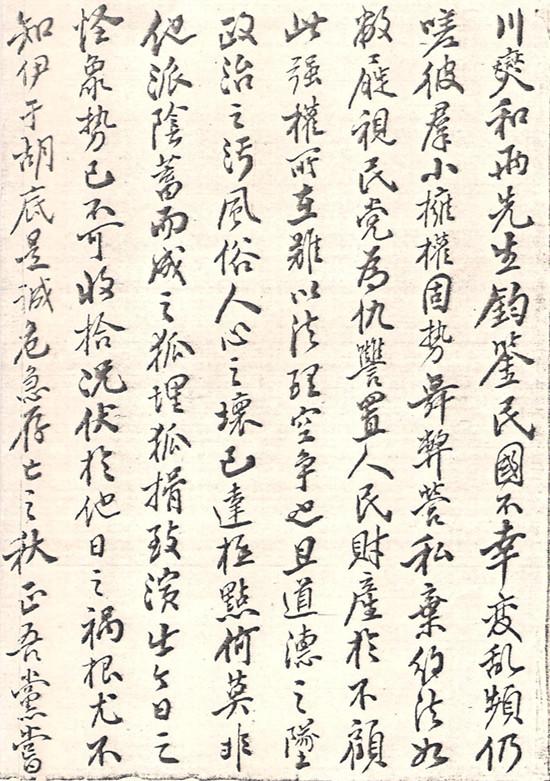 川燮和两先生鈞鉴民國不幸变乱頻仍
嗟彼羣小擁權固势舞弊营私棄約法如
敝屣視民党為仇讐置人民財產於不顧
此强權所在難以法理空争也且道德之墜
政治之污風俗人心之壞已達極點何莫非
他派陰蓄而成之狐埋狐搰致演出今日之
怪象势已不可收拾况伏於他日之禍根尤不
知伊于胡底是诚危急存亡之秋正吾黨當